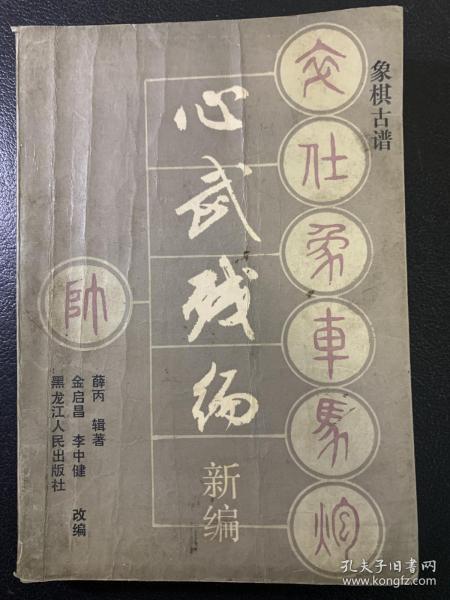 象棋古谱
卒
仕
象
車
馬
炮
心武残编
新编
帥
薛丙 辑著
金启昌 李中健 改编
黑龙江人民出版社
孔夫子旧书网
www.kongfz.com